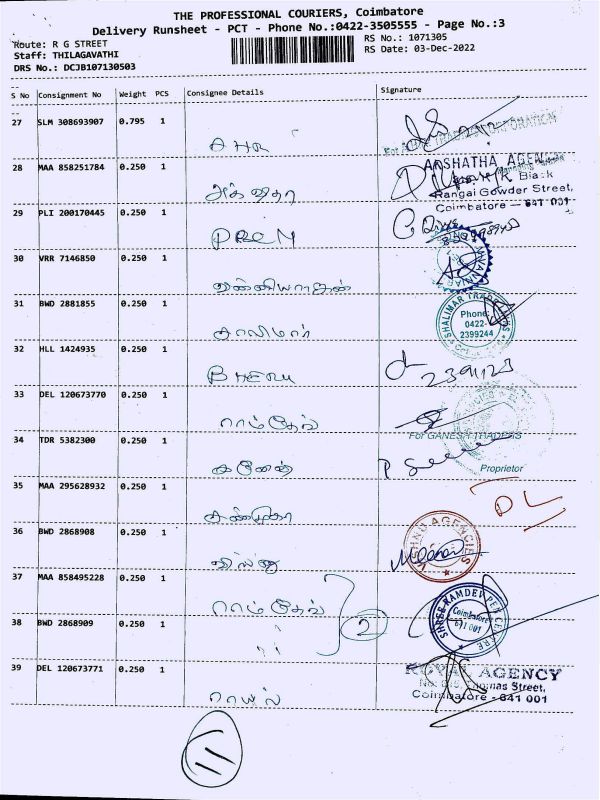 THE PROFESSIONAL COURIERS, Coimbatore
Delivery Runsheet - PCT - Phone No.:0422-3505555 - Page No.:3
Route: R G STREET
RS No.: 1071305
Staff: THILAGAVATHI
RS Date: 03-Dec-2022
DRS No.: DCJB107130503
S No Consignment No Weight PCS Consignee Details Signature
27 SLM 308693907 0.795 1
28 MAA 858251784 0.250 1
அக்ஷதா
ARSHATHA AGEN
Rangai Gowder Street,
Coimbatore - 641 001
29 PLI 200170445 0.250 1
30 VRR 7146850 0.250 1
31 BWD 2881855 0.250 1
சாலிமார்
SHALIMAR TRADERS
Phone:
0422-
2399244
32 HLL 1424935 0.250 1
BHERU
33 DEL 120673770 0.250 1
ராம்தேவ்
34 TDR 5382300 0.250 1
கனேஷ்
For GANESH TRADERS
Proprietor
35 MAA 295628932 0.250 1
சண்முகா
DL
36 BWD 2868908 0.250 1
விஷ்ணு
AGENCIES
37 MAA 858495228 0.250 1
ராம்தேவ்
2
SHREE RAMDEV PEN CENTRE
Coimbatore
641 001
38 BWD 2868909 0.250 1
" "
39 DEL 120673771 0.250 1
ராயல்
ROYAL AGENCY
Thomas Street,
Coimbatore - 641 001
11